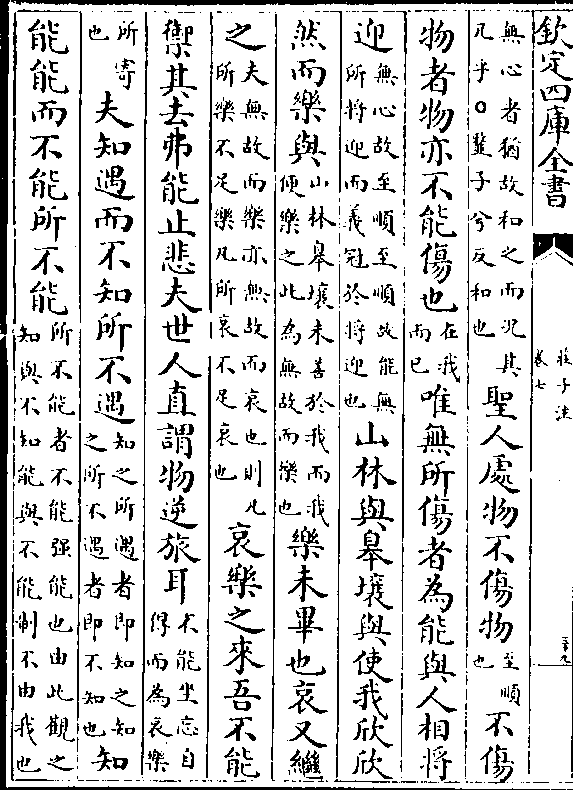 欽定四庫全書
莊子注
卷七
三十九
無心者猶故和之而況其
凡乎○𩐎子兮反和也
聖人處物不傷物
至順
也
不傷
物者物亦不能傷也
在我
而已
唯無所傷者為能與人相將
迎
無心故至順至順故能無
所將迎而義冠於將迎也
山林與皋壤與使我欣欣
然而樂與
山林皋壤未善於我而我
便樂之此為無故而樂也
樂未畢也哀又繼
之
夫無故而樂亦無故而哀也則凡
所樂不足樂凡所哀不足哀也
哀樂之來吾不能
禦其去弗能止悲夫世人直謂物逆旅耳
不能坐忘自
得而為哀樂
所寄
也
夫知遇而不知所不遇
知之所遇者即知之知
之所不遇者即不知也
知
能能而不能所不能
所不能者不能强能也由此觀之
知與不知能與不能制不由我也